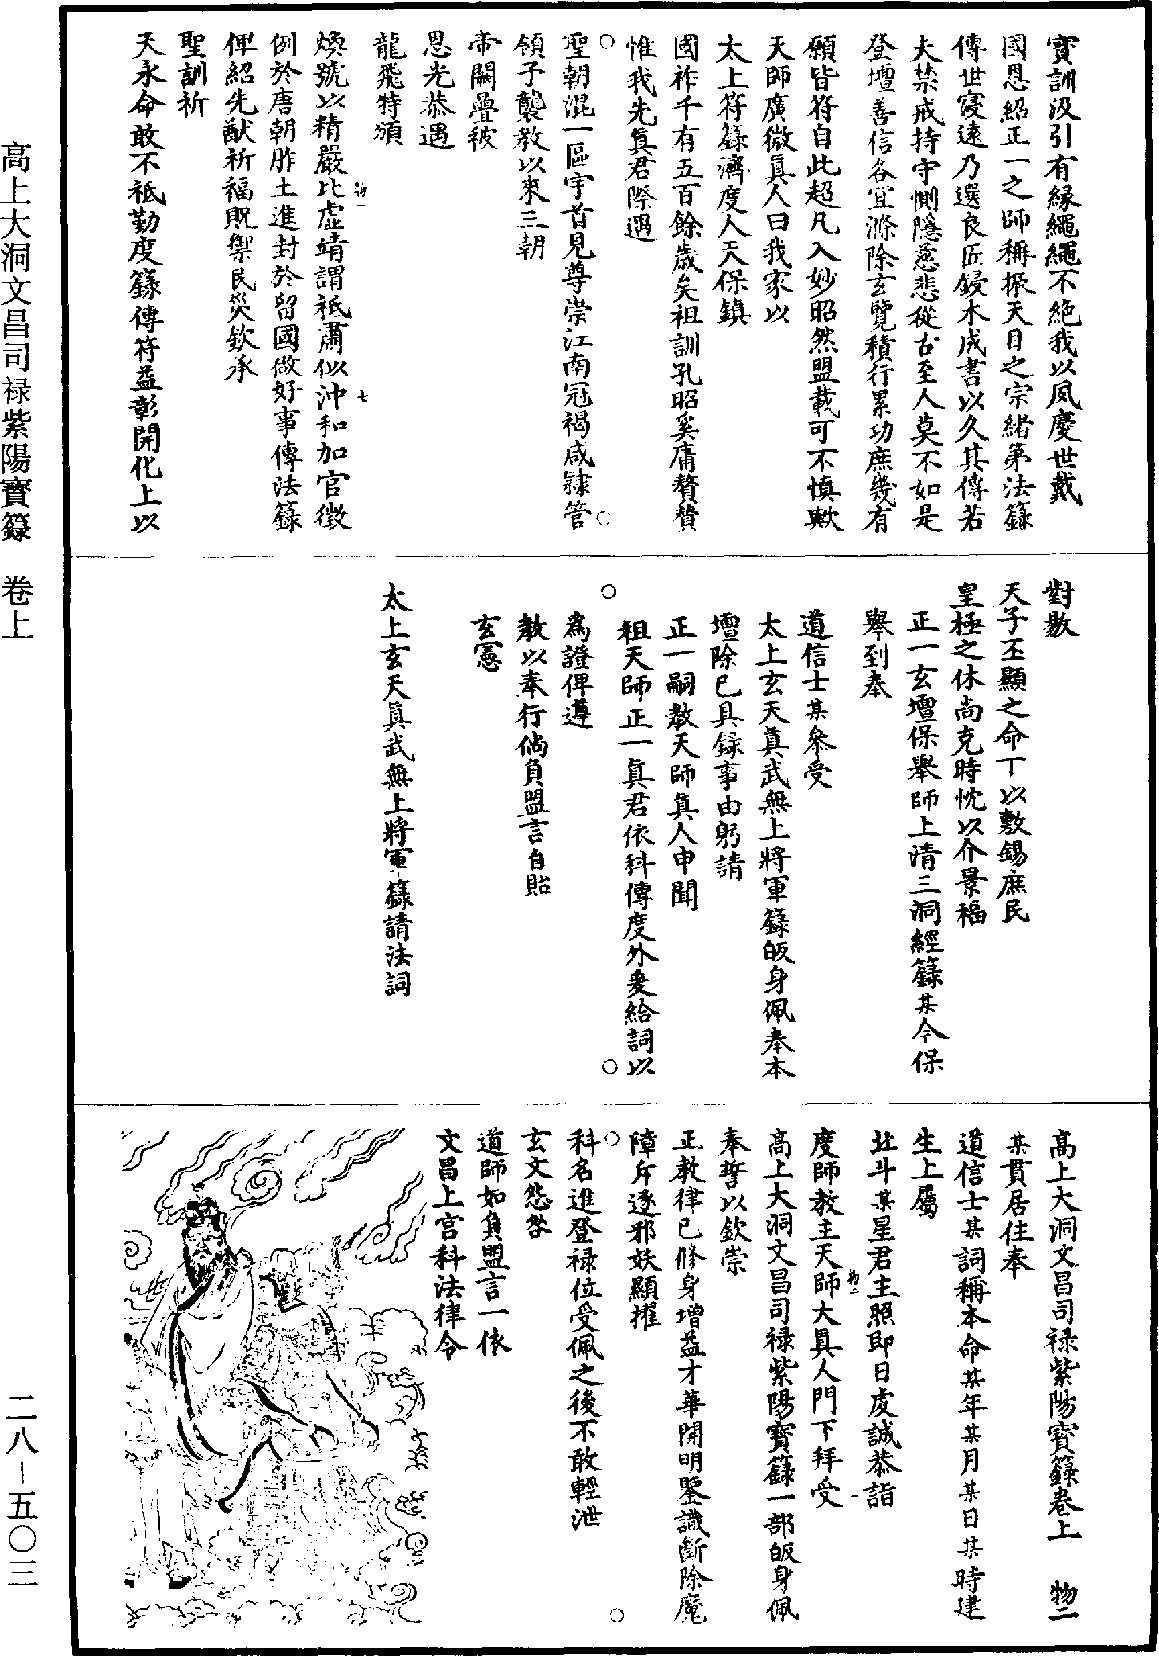 寳訓汲引有緣繩繩不絕我以夙慶世戴
國恩紹正一之師稱振天目之宗緒第法籙
傳世寖遠乃選良匠鋟木成書以久其傳若
夫禁戒持守惻隱慈悲從古至人莫不如是
登壇善信各宜滌除玄覽積行累功庶幾有
願皆符自此超凡入妙昭然盟載可不慎歟
天師廣微真人曰我家以
太上符籙濟度人天保鎮
國祚千有五百餘歲矣祖訓孔昭奚庸贅贊
惟我先真君際遇
聖朝混一區宇首見尊崇江南冠褐咸隸管
領子襲教以來三朝
帝闕疊被
恩光恭遇
龍飛特頒
煥號以精嚴比虛靖謂祗肅似沖和加官徵
例於唐朝胙土進封於留國做好事傳法籙
俾紹先猷祈福貺禦民災欽承
聖訓祈
天永命敢不祗勤度籙傳符益彰開化上以
對敭
天子丕顯之命下以敷錫庶民
皇極之休尚克時忱以介景福
正一玄壇保舉師上清三洞經籙某今保
舉到奉
道信士某叅受
太上玄天真武無上將軍籙皈身佩奉本
壇除已具錄事由躬請
正一嗣教天師真人申聞
祖天師正一真君依科傳度外爰給詞以
為證俾遵
教以奉行倘負盟言自貽
玄憲
太上玄天真武無上將軍籙請法詞
高上大洞文昌司祿紫陽寳籙卷上 物二
某貫居住奉
道信士某詞稱本命某年某月某日某時建
生上屬
北斗某星君主照即日虔誠恭詣
度師教主天師大真人門下拜受
高上大洞文昌司祿紫陽寳籙一部皈身佩
奉誓以欽崇
正教律已修身增益才華開明鑒識斷除魔
障斥逐邪妖顯擢
科名進登祿位受佩之後不敢輕泄
玄文怨咎
道師如負盟言一依
文昌上宮科法律令
高上大洞文昌司禄紫陽寳籙 卷上
二八－五〇三